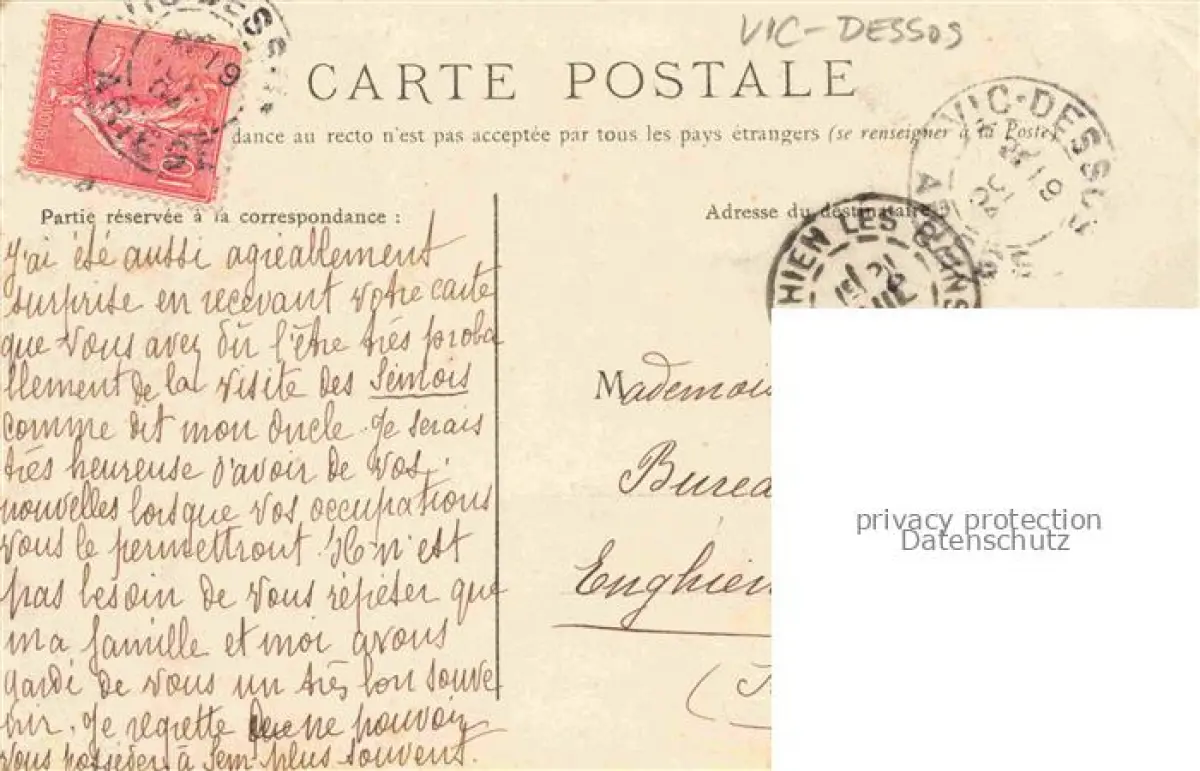 VIC-DESSOS
CARTE POSTALE
dance au recto n'est pas acceptée par tous les pays étrangers (se renseigner à la Poste)
RÉPUBLIQUE FRANÇAISE
10
VIC-DESSOS
19
VIC-DESSOS
19
HIEN LES BAINS
Partie réservée à la correspondance :
Adresse du destinataire
J'ai été aussi agréablement
surprise en recevant votre carte
que vous avez dû l'être très proba
llement de la visite des Sémois
comme dit mon oncle. Je serais
très heureuse d'avoir de vos
nouvelles lorsque vos occupations
vous le permettront. Il n'est
pas besoin de vous répéter que
ma famille et moi avons
gardé de vous un très bon souve
nir. Je regrette ne pouvoir
vous posséder à Sem plus souvent.
Mademois
Burea
Enghien
privacy protection
Datenschutz